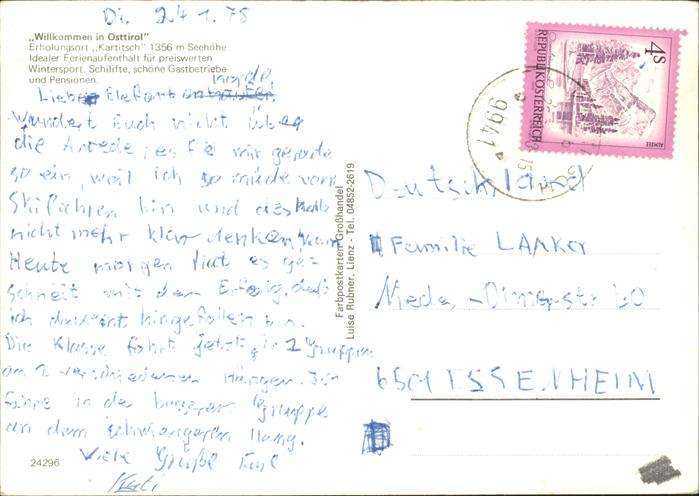 Di. 24.1.78
„Willkommen in Osttirol"
Erholungsort „Kartitsch" 1356 m Seehöhe
Idealer Ferienaufenthalt für preiswerten
Wintersport, Schilifte, schöne Gastbetriebe
und Pensionen
Liebe Elefanten
wundert Euch nicht über
die Anrede, es fiel mir gerade
so ein, weil ich so müde vom
Skifahren bin und deshalb
nicht mehr klar denken kann.
Heute morgen hat es ge-
schneit mit dem Erfolg, daß
ich dauernd hingefallen bin.
Die Klasse fährt jetzt in 2 Gruppen
an 2 verschiedenen Hängen. Ich
fahre in der besseren Gruppe
an dem schwierigeren Hang.
Viele Grüße Eure
24296
Farbpostkarten Großhandel
Luise Rubner, Lienz - Tel. 04852-2619
4S
REPUBLIK ÖSTERREICH
9941
Deutschland
Familie
6501